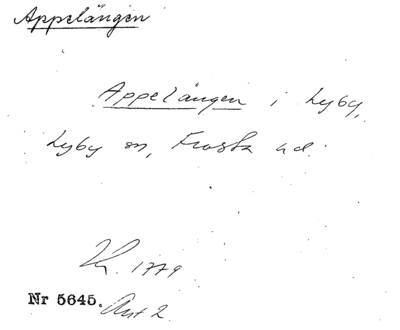 Appelängen
Appelängen i Lyby,
Lyby sn, Frosta hd.
1779
Nr 5645. Akt 2